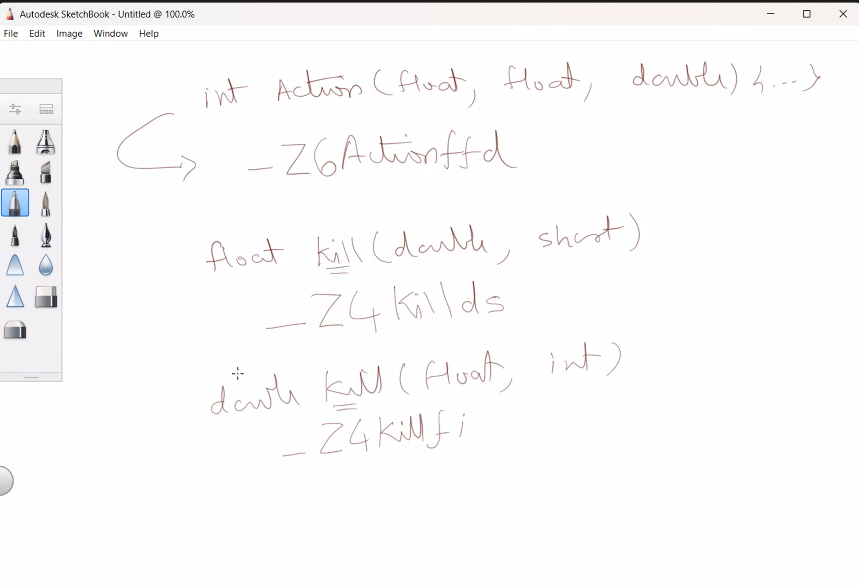 Autodesk SketchBook - Untitled @ 100.0%
File Edit Image Window Help
int Action (float, float, double) {...}
_Z6Actionffd
float kill (double, short)
_Z4killds
double kill (float, int)
_Z4killfi